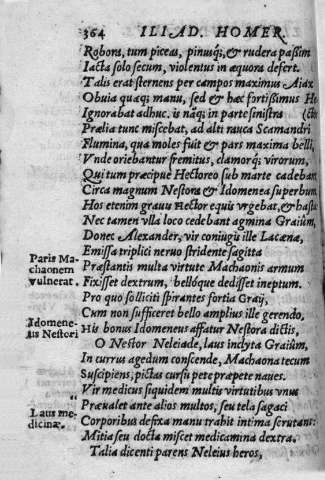 364 ILIAD. HOMER.
Robora, tum piceas, pinusq́;, & rudera paßim
Iacta solo secum, violentus in æquora defert.
Talis erat sternens per campos maximus Aiax
Obuia quæq; manu, sed & hæc fortißimus He
Ignorabat adhuc. is nāq; in parte sinistra (cto
Prælia tunc miscebat, ad alti rauca Scamandri
Flumina, qua moles fuit & pars maxima belli,
Vnde oriebantur fremitus, clamorq́; virorum,
Qui tum præcipue Hectoreo sub marte cadebant
Circa magnum Nestora & Idomenea superbum
Hos etenim grauu Hector equis vrgebat, & hasta
Nec tamen vlla loco cedebant agmina Graiûm,
Donec Alexander, vir coniugii ille Lacæna,
Emissa triplici neruo stridente sagitta
Paris Ma-
chaonem
vulnerat.
Præstantis multa virtute Machaonis armum
Fixisset dextrum, bellóque dedisset ineptum.
Pro quo solliciti spirantes fortia Graij,
Cum non sufficeret bello amplius ille gerendo,
Idomene-
us Nestori
His bonus Idomeneus affatur Nestora dictis,
O Nestor Neleiade, laus inclyta Graiûm,
In currus agedum conscende, Machaona tecum
Suscipiens, pictas cursu pete præpete naues.
Vir medicus siquidem multis virtutibus vnus
Laus me-
dicinæ.
Præualet ante alios multos, seu tela sagaci
Corporibus defixa manu trahit intima scrutans:
Mitia seu docta miscet medicamina dextra.
Talia dicenti parens Neleius heros,